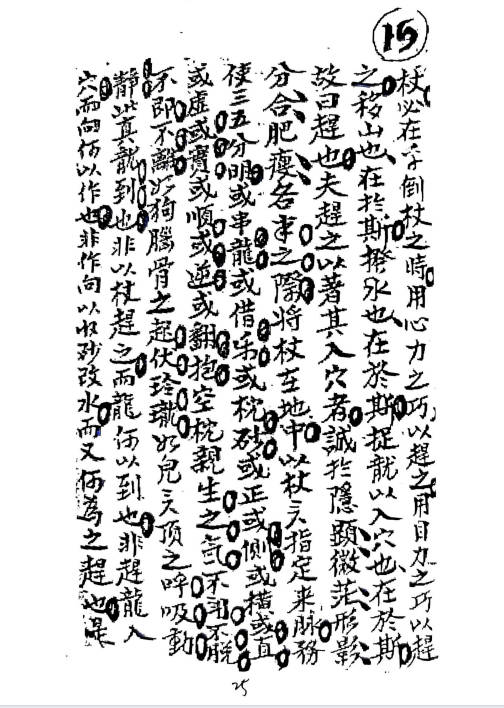 15
杖必在乎倒杖之時用心力之巧以趕之用目力之巧以趕
之移山也在於斯撥水也在於斯捉龍以入穴也在於斯
故曰趕也夫趕之以著其入穴者誠於隱顕微茫形影
分合肥瘦各半之際將杖在地中以杖头指定来脉務
使三五分明或串龍或借乐或枕砂或正或側或橫或直
或虛或實或順或逆或翻抱空枕親生之氣不不脫
不即不離如狗腦骨之起伏玲瓏如兒头頂之呼吸動
靜此真龍到也非以杖趕之而龍何以到也非趕龍入
穴而向何以作也非作向以收砂改水而又何為之趕也是
25